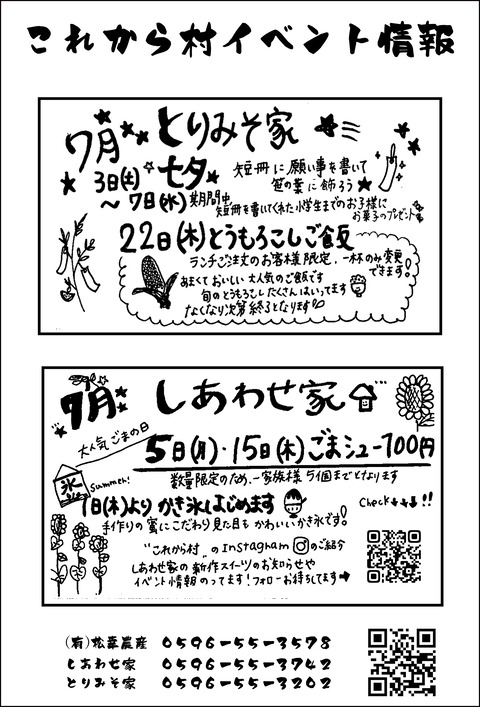 これから村イベント情報
7月 とりみそ家
3日(土) 七夕 短冊に願い事を書いて
笹の葉に飾ろう
～7日(水) 期間中
短冊を書いてくれた小学生までのお子様に
お菓子のプレゼント
22日(木)とうもろこしご飯
ランチご注文のお客様限定、一杯のみ変更
できます!
あまくておいしい大人気のご飯です
旬のとうもろこしたくさんはいってます
なくなり次第終了となります
7月 しあわせ家
大人気ごまの日
5日(月)・15日(木)ごまシュー100円
数量限定のため、一家族様5個までとなります
氷
Summer!
1日(木)より かき氷はじめます
Check↓↓↓!!
手作りの蜜にこだわり見た目もかわいいかき氷です!
"これから村"のInstagramのご紹介
しあわせ家の新作スイーツのお知らせや
イベント情報のってます!フォローお待ちしてます➡
(有)松葉農産 0596-55-3578
しあわせ家 0596-55-3742
とりみそ家 0596-55-3202